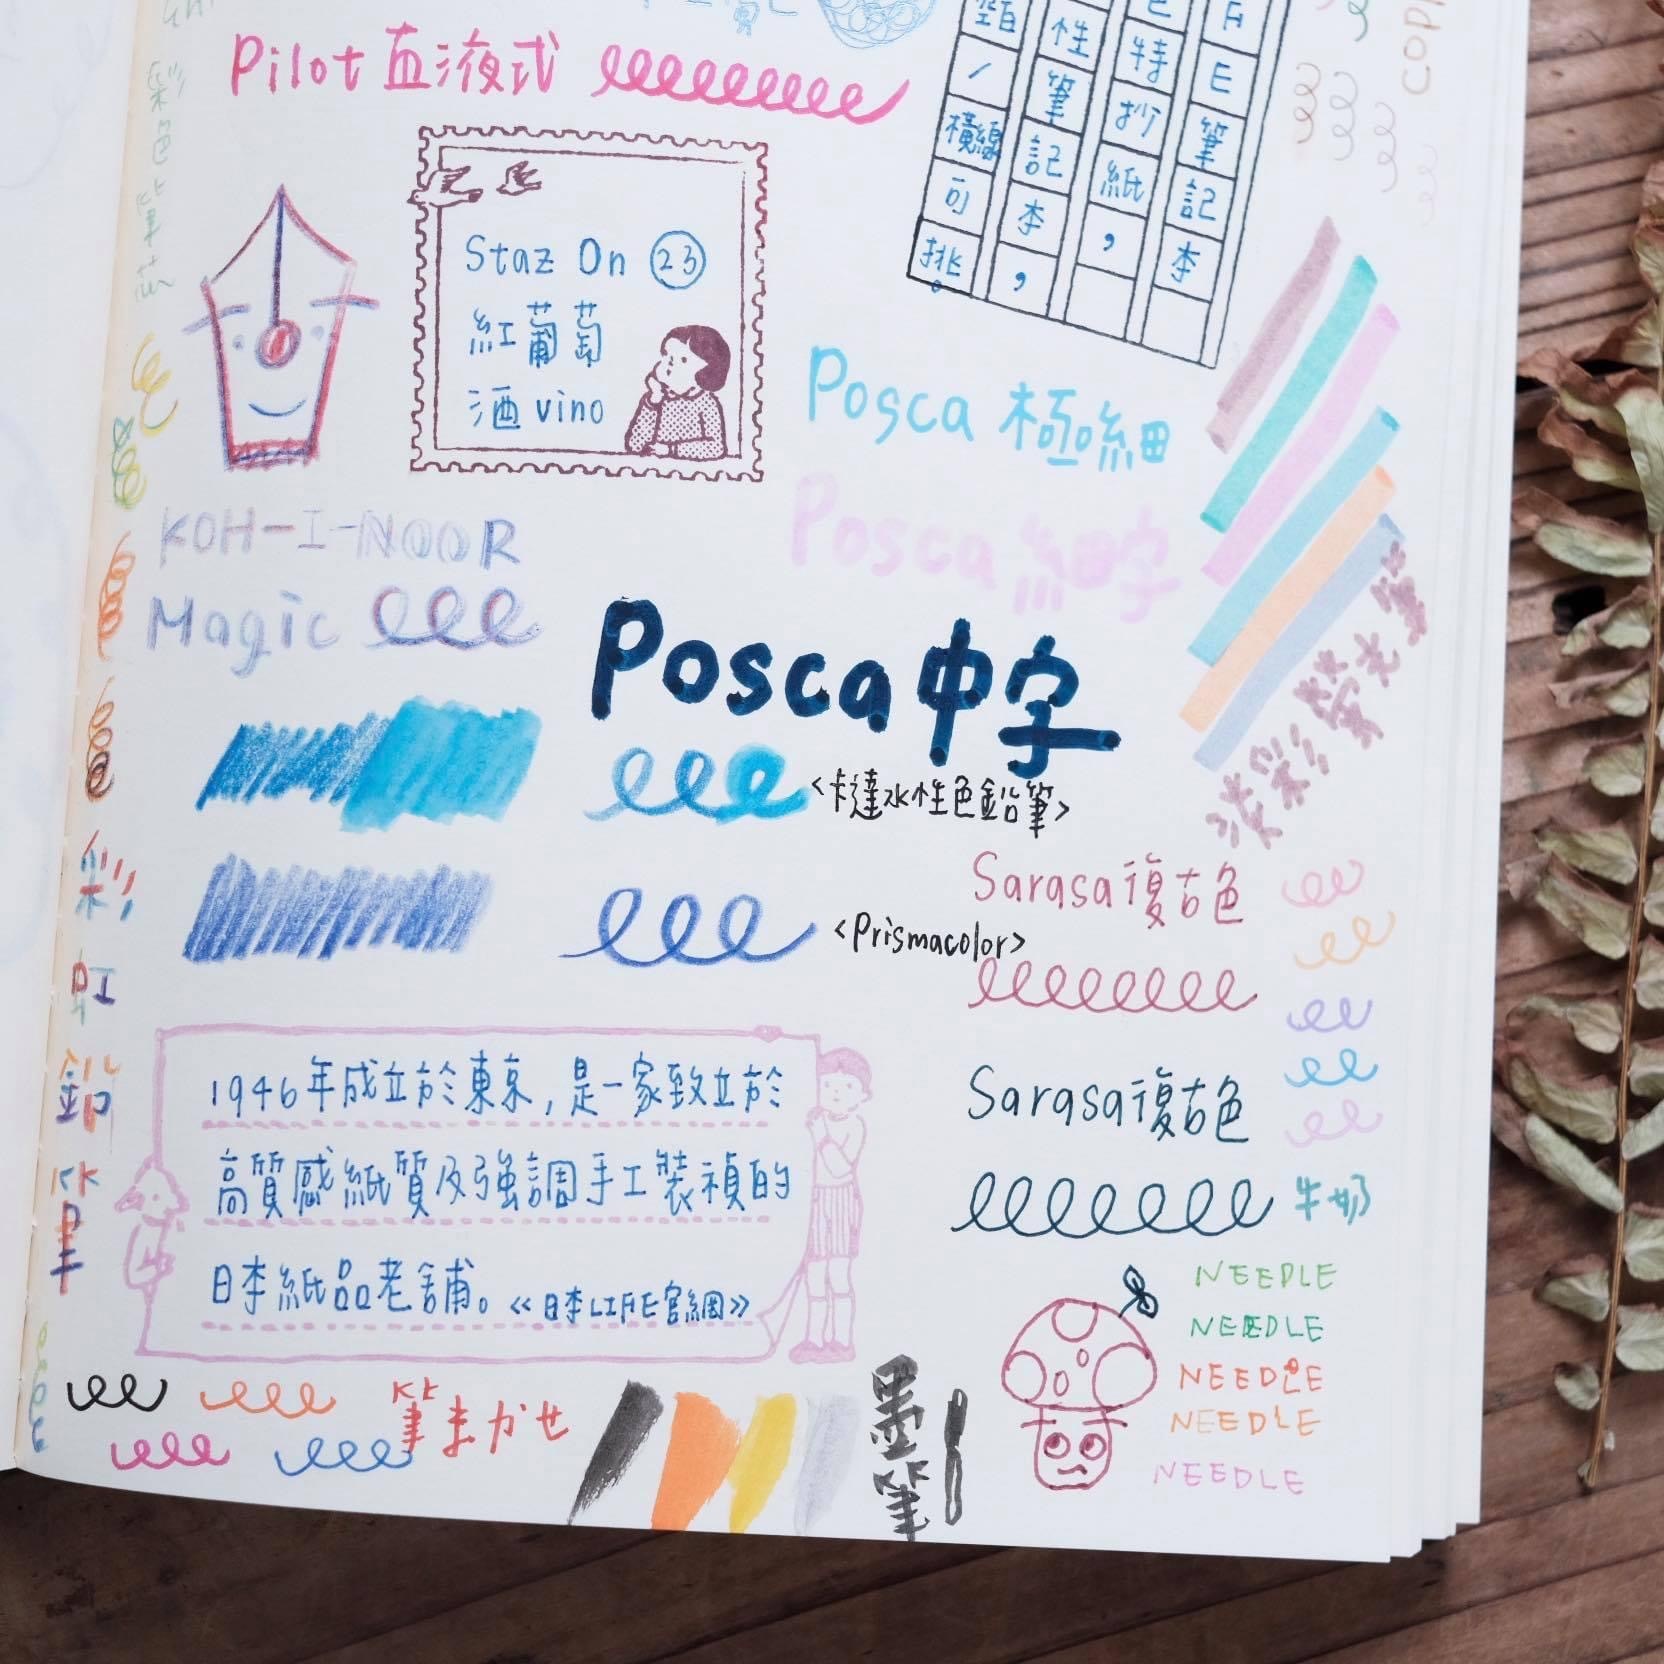 Pilot 直液式
Staz On ㉓
紅葡萄
酒 vino
E筆記本
特抄紙，
性筆記本，
/橫線可挑。
Posca 極細
Posca 細字
Posca 中字
KOH-I-NOOR
Magic
淡彩螢光筆
<卡達水性色鉛筆>
<Prismacolor>
Sarasa復古色
Sarasa復古色
牛奶
彩虹鉛筆
1946年成立於東京，是一家致立於
高質感紙質及強調手工裝禎的
日本紙品老舖。《日本LIFE官網》
NEEDLE
NEEDLE
NEEDLE
NEEDLE
NEEDLE
筆まかせ
墨筆